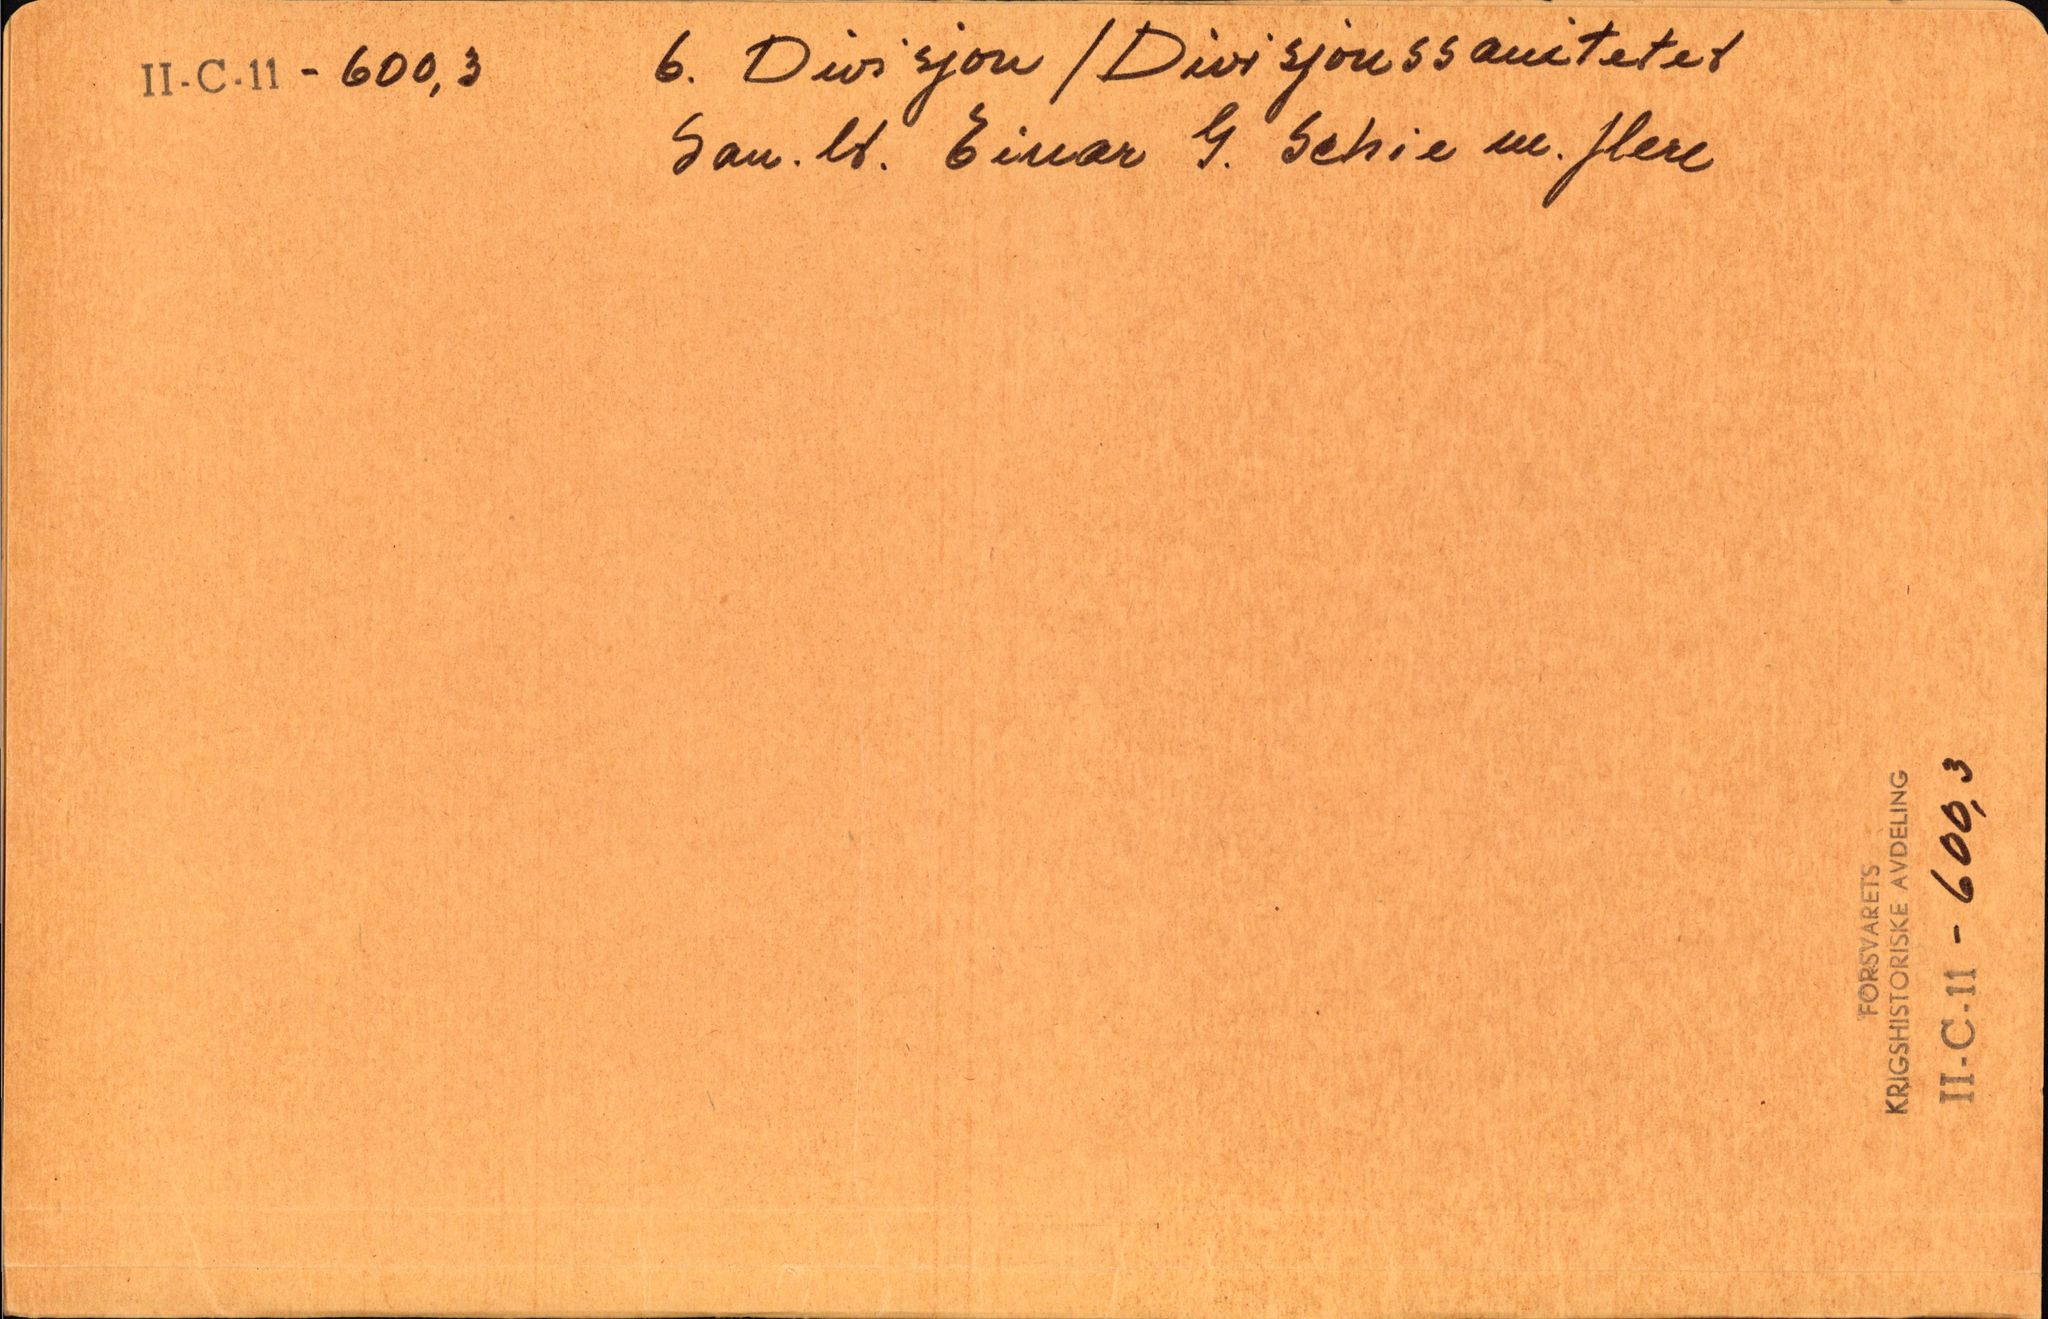 II-C-11 - 600,3 6. Divisjon / Divisjonssanitetet
San. lt. Einar G. Schie m. flere
FORSVARETS
KRIGSHISTORISKE AVDELING
II-C-11 - 600,3